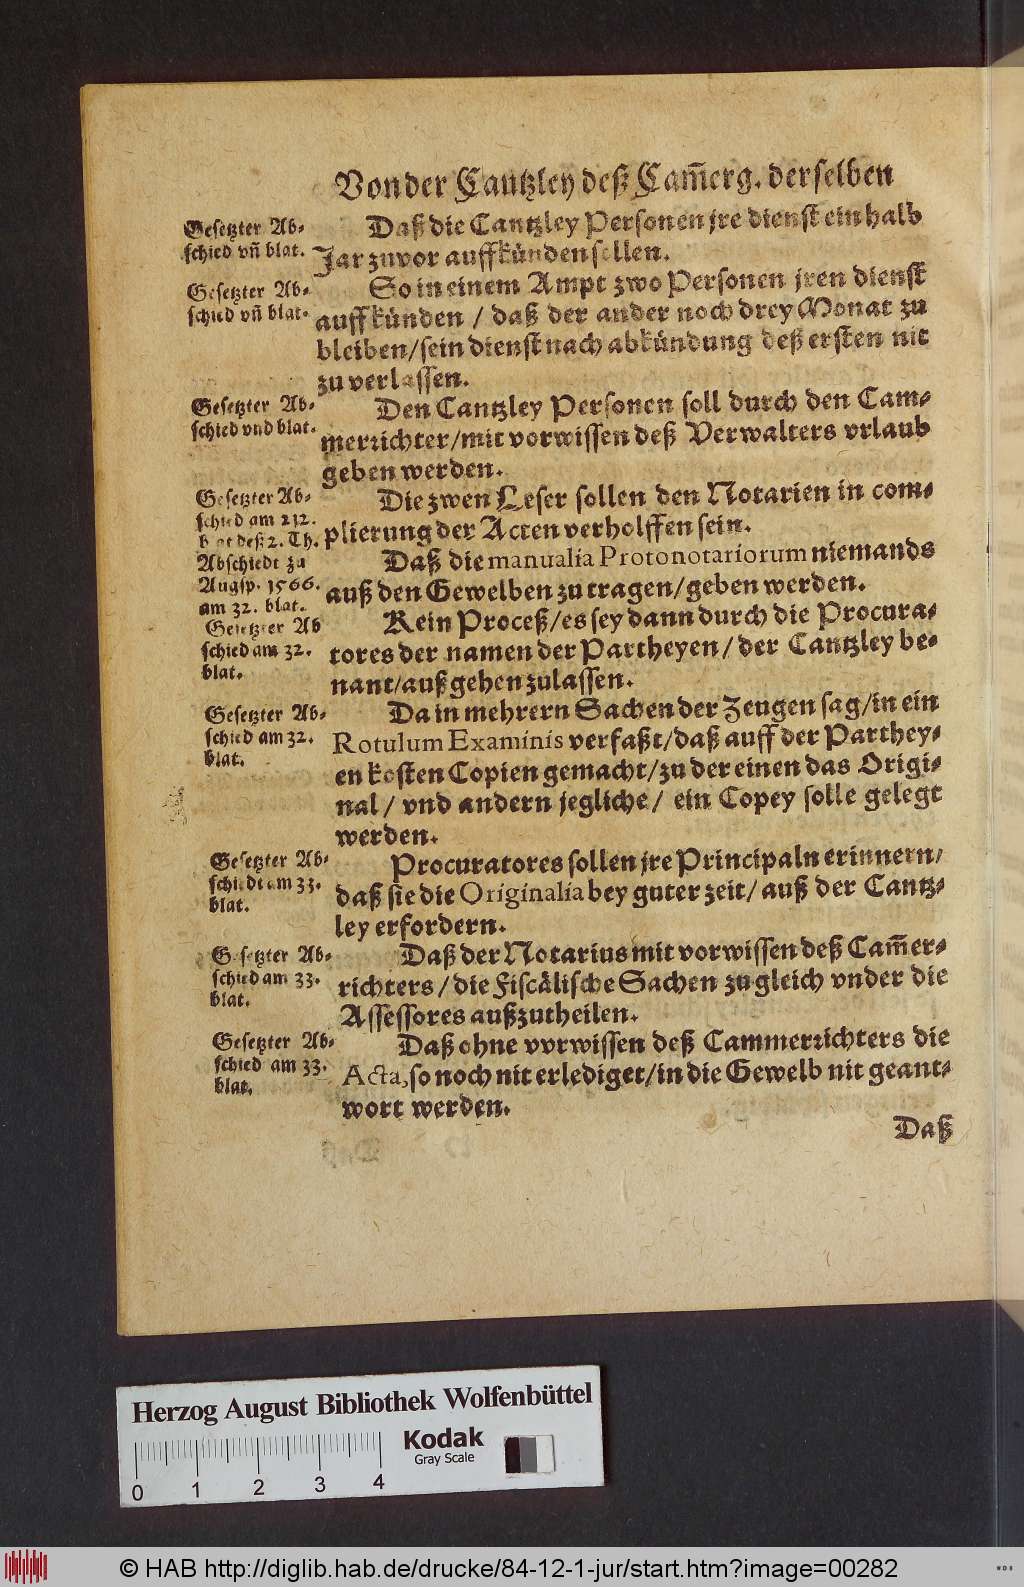 Von der Cantzley deß Cam̄erg. derselben
Gesetzter Ab-
schied vn̄ blat.
Daß die Cantzley Personen jre dienst ein halb
Jar zuvor auffkünden sollen.
Gesetzter Ab-
schied vn̄ blat.
So in einem Ampt zwo Personen jren dienst
auffkünden / daß der ander noch drey Monat zu
bleiben/sein dienst nach abkündung deß ersten nit
zu verlassen.
Gesetzter Ab-
schied vnd blat.
Den Cantzley Personen soll durch den Cam-
merrichter/mit vorwissen deß Verwalters vrlaub
geben werden.
Gesetzter Ab-
schied am 212.
blat deß 2. Th.
Die zwen Leser sollen den Notarien in com-
plierung der Acten verholffen sein.
Abschiedt zu
Augsp. 1566.
am 32. blat.
Daß die manualia Protonotariorum niemands
auß den Gewelben zu tragen/geben werden.
Gesetzter Ab
schied am 32.
blat.
Kein Proceß/es sey dann durch die Procura-
tores der namen der Partheyen / der Cantzley be-
nant/auß gehen zulassen.
Gesetzter Ab-
schied am 32.
blat.
Da in mehrern Sachen der Zeugen sag/in ein
Rotulum Examinis verfaßt/daß auff der Parthey-
en kosten Copien gemacht/zu der einen das Origi-
nal / vnd andern jegliche / ein Copey solle gelegt
werden.
Gesetzter Ab-
schiedt am 33.
blat.
Procuratores sollen jre Principaln erinnern/
daß sie die Originalia bey guter zeit/ auß der Cantz-
ley erfordern.
Gesetzter Ab-
schied am 33.
blat.
Daß der Notarius mit vorwissen deß Cam̄er-
richters / die Fiscälische Sachen zugleich vnder die
Assessores außzutheilen.
Gesetzter Ab-
schied am 33.
blat.
Daß ohne vorwissen deß Cammerrichters die
Acta, so noch nit erlediget/in die Gewelb nit geant-
wort werden.
Daß
Herzog August Bibliothek Wolfenbüttel
Kodak
Gray Scale
0 1 2 3 4
© HAB http://diglib.hab.de/drucke/84-12-1-jur/start.htm?image=00282